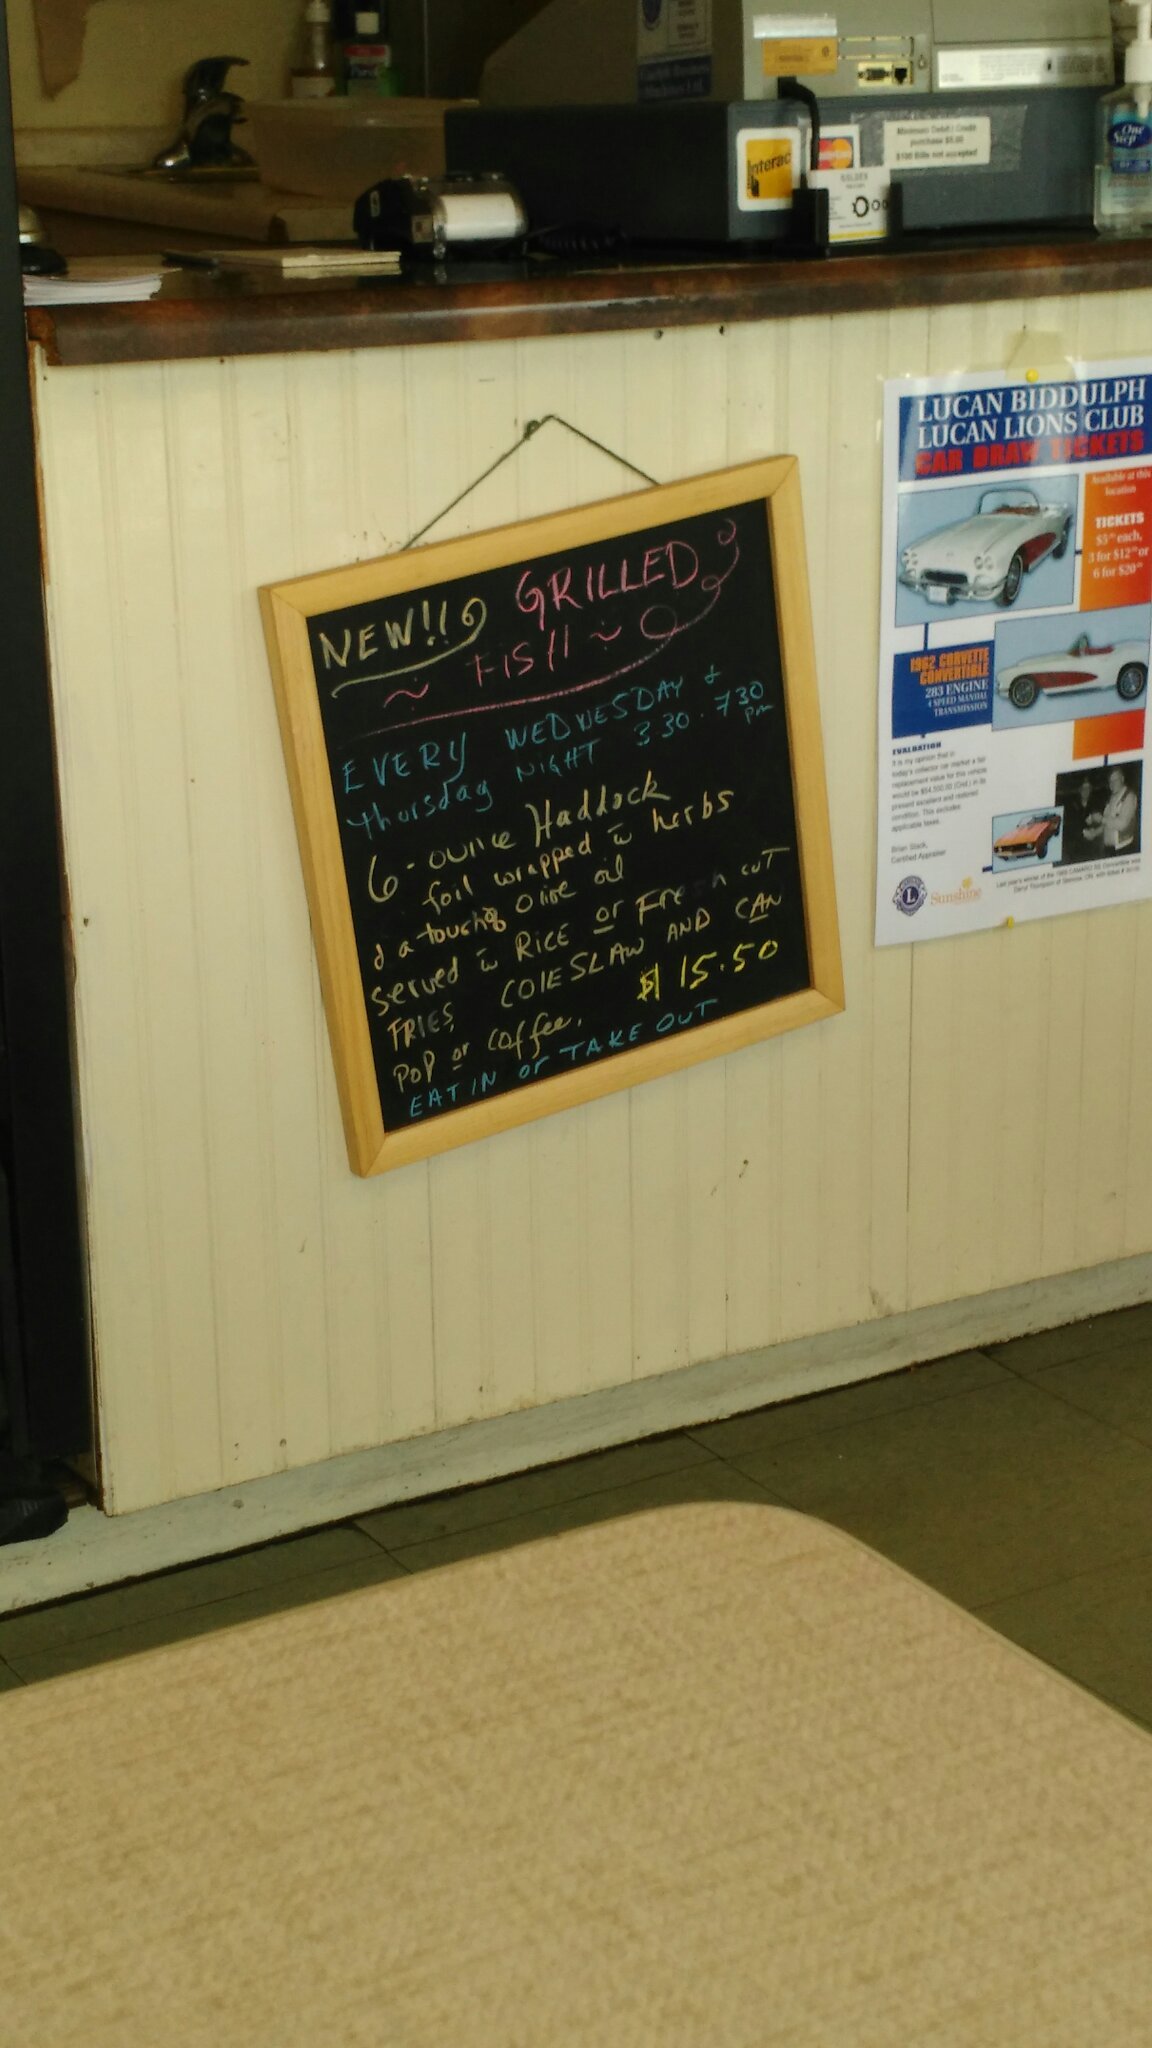 Interac
MasterCard
Minimum Debit / Credit
purchase $5.00
$100 Bills not accepted
One
Step
NEW!! GRILLED
~ FISH ~
EVERY WEDNESDAY +
thursday NIGHT 330 - 730
pm
6-ounce Haddock
foil wrapped in herbs
& a touch of Olive oil
served in RICE or Fresh cut
FRIES, COLESLAW AND CAN
POP or Coffee. $15.50
EAT IN or TAKE OUT
LUCAN BIDDULPH
LUCAN LIONS CLUB
CAR DRAW TICKETS
Available at this
location
TICKETS
$5.00 each,
3 for $12.00 or
6 for $20.00
1962 CORVETTE
CONVERTIBLE
283 ENGINE
4 SPEED MANUAL
TRANSMISSION
EVALUATION
It is my opinion that in
today's collector car market a fair
replacement value for this vehicle
would be
present excellent and restored
condition. This excludes
applicable taxes.
Brian Slack,
Certified Appraiser
L
Sunshine